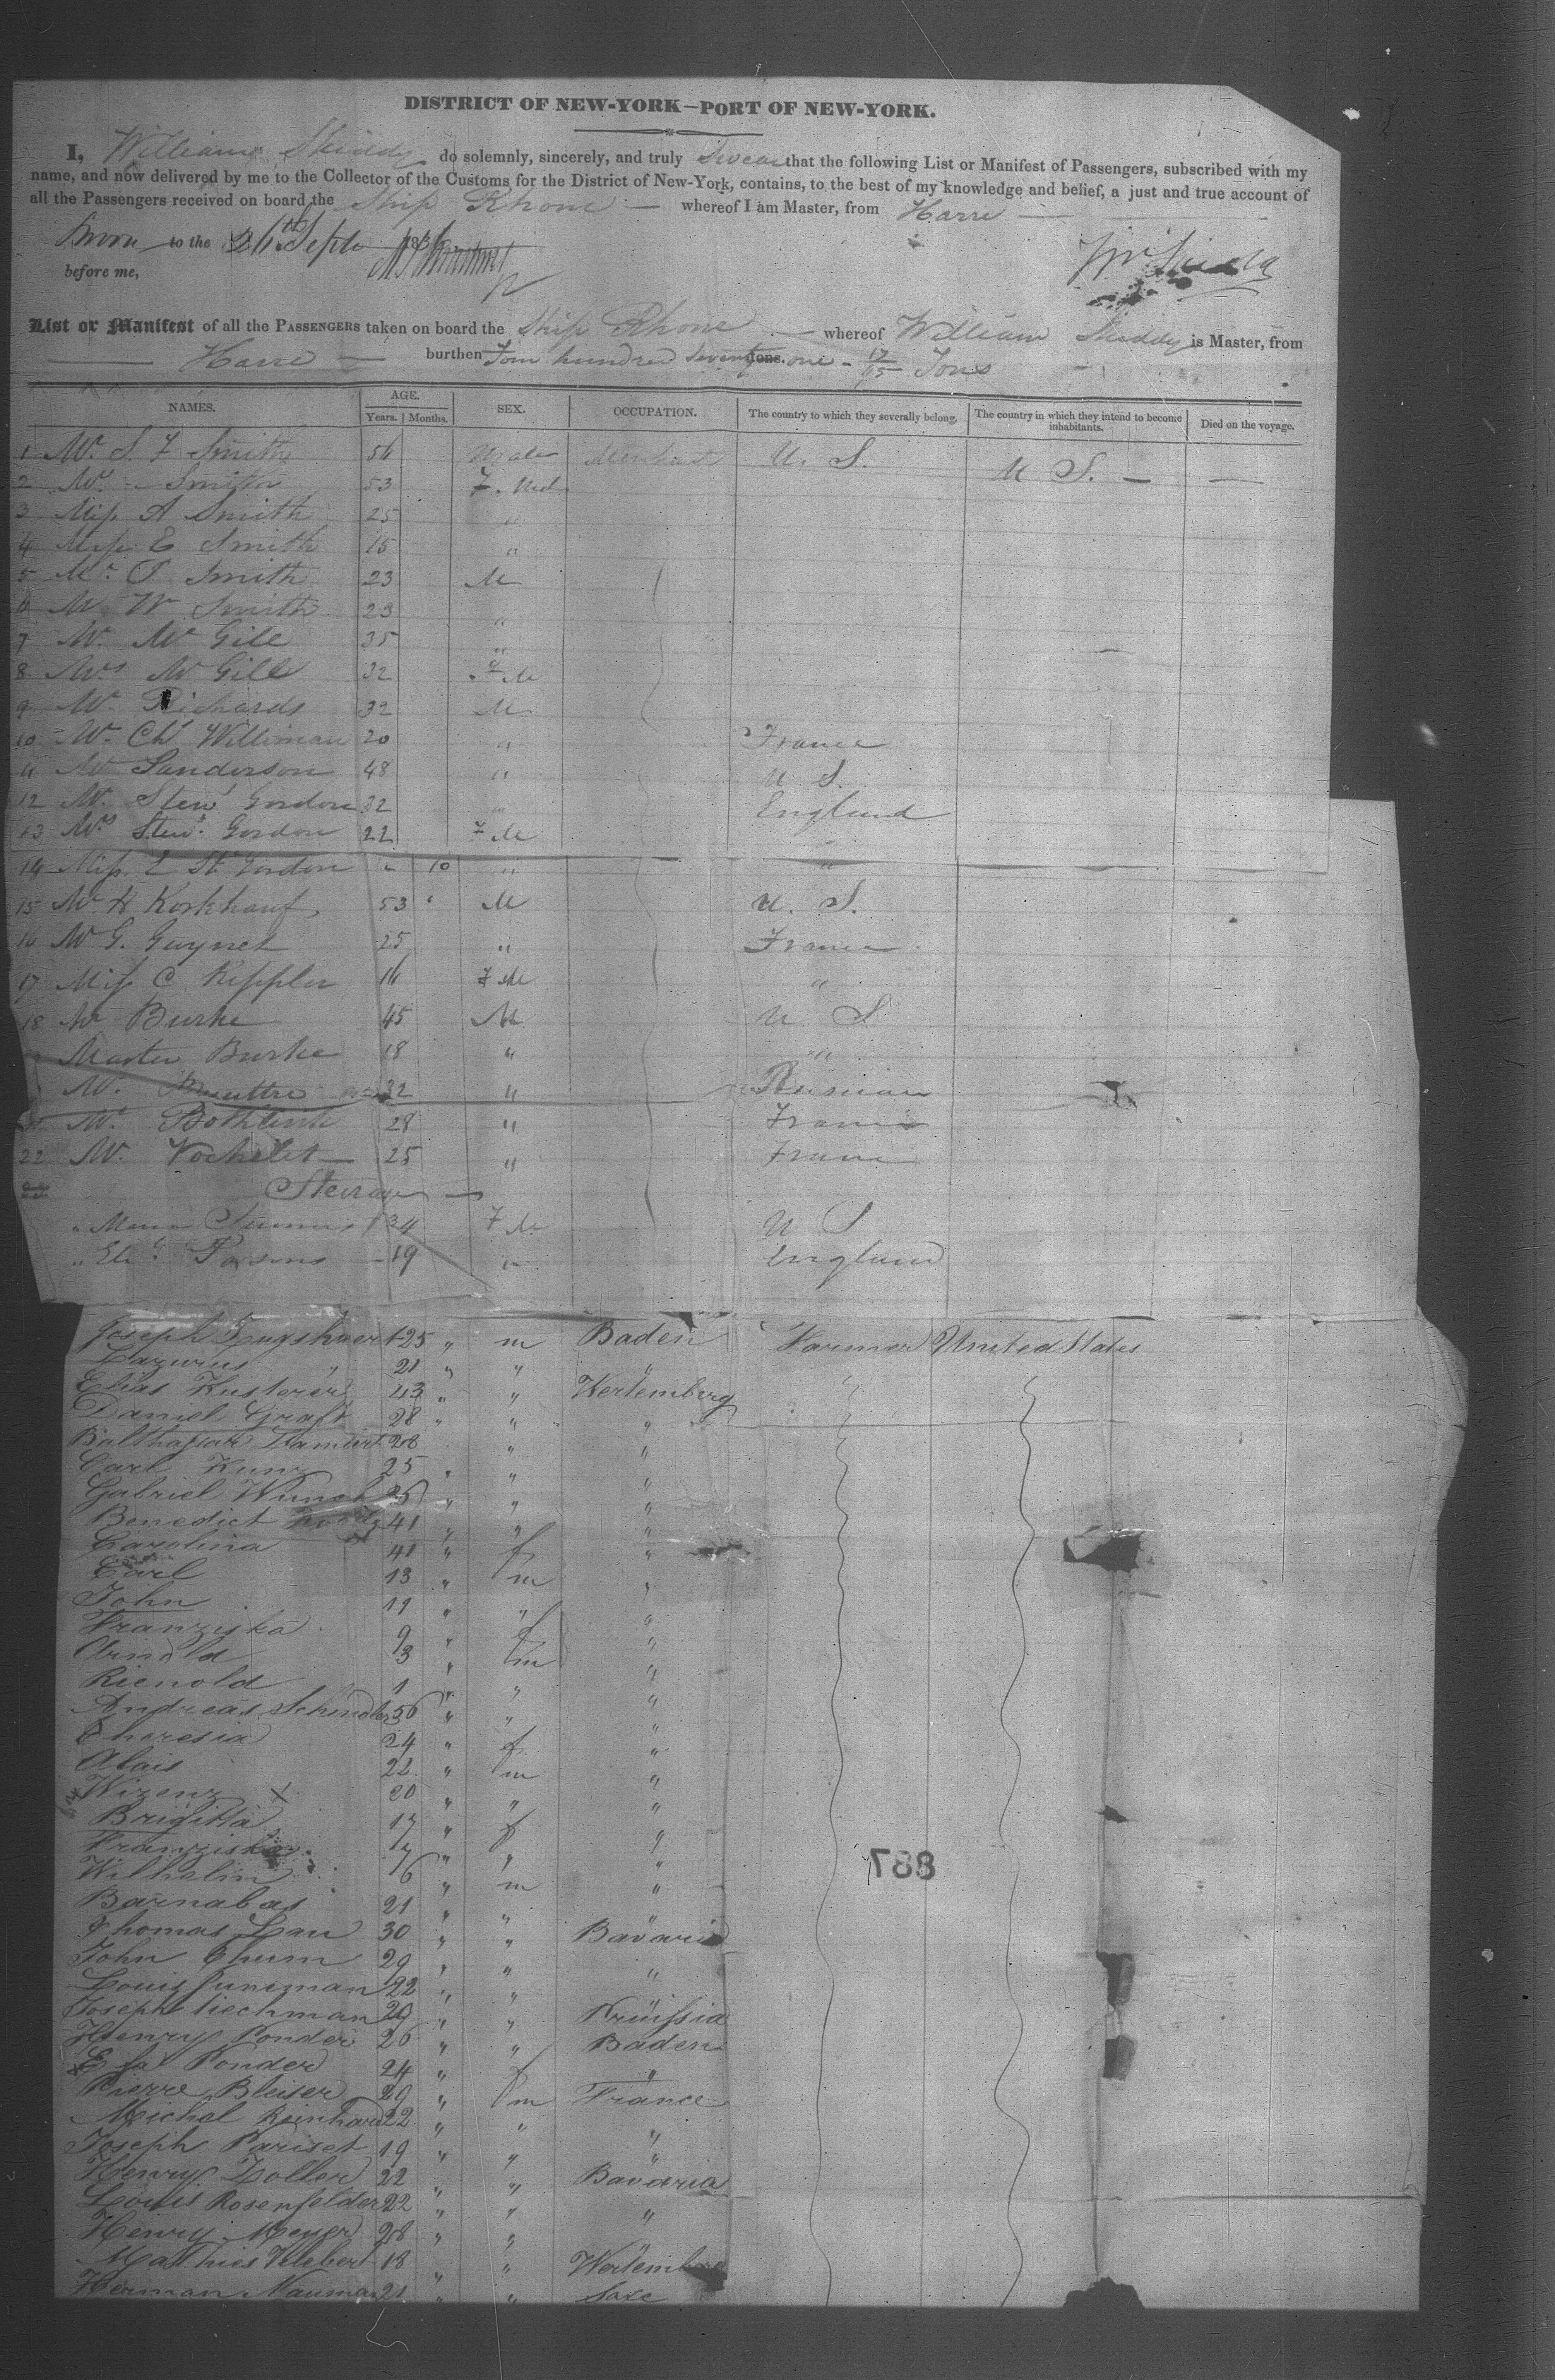 DISTRICT OF NEW-YORK—PORT OF NEW-YORK.
I, William Skiddy do solemnly, sincerely, and truly Swear that the following List or Manifest of Passengers, subscribed with my
name, and now delivered by me to the Collector of the Customs for the District of New-York, contains, to the best of my knowledge and belief, a just and true account of
all the Passengers received on board the Ship Rhone — whereof I am Master, from Havre —
Sworn to the 26th Septr 183
before me,
Wm Skiddy
List or Manifest of all the PASSENGERS taken on board the Ship Rhone — whereof William Skiddy is Master, from
Havre — burthen Four hundred Seventy tons. one - 17/95 Tons
NAMES. AGE. SEX. OCCUPATION. The country to which they severally belong. The country in which they intend to become inhabitants. Died on the voyage.
Years. Months.
1 Mr. S. F Smith 56 Male Merchant U. S. U S. — —
2 Smith 53 F. Mal
3 Miss A Smith 25 "
4 Miss E Smith 15 "
5 Mr. Smith 23 M
6 M W Smith 23 "
7 Mr. Mc Gill 35 "
8 Mrs Mc Gill 32 F M
9 Mr. Richards 32 M
10 Mr. Chs Williman 20 " France
11 Mr Sanderson 48 " U S.
12 Mr. Stewt Gordon 32 " England
13 Mrs Stewt. Gordon 22 F M
14 Miss. L St Gordon - 10 " "
15 Mr H Korkhauf 53 " M U. S.
16 Mr G. Guynet 25 " France
17 Miss C Keppler 16 F M "
18 Mr Burke 45 M U S
Master Burke 18 " "
Mr. 32 " Rusian
Mr. Bothlink 28 " France
22 Mr. Vochelet 25 " France
Steerage —
" 34 F M U S
" Eliz. Parsons 19 " England
Joseph 25 " m Baden Farmer United States
Lazurus " 21 " " "
Elias Kusterer 43 " " Wertemberg
Daniel Graft 28 " " "
Balthasar 28 " "
Carl Kunz 25 " " "
Gabriel Wunch 25 " " "
Benedict 41 " " "
Carolina 41 " f "
Carl 13 " m "
John 11 " " "
Franziska 9 " f "
Arnold 3 " m "
Rienold 1 " " "
Andreas Schindler 56 " " "
Theresia 24 " f "
Alois 22 " m "
Wizenz X 20 " " "
Brigitta 17 " f "
Franziska 7 " " "
Wilhelm 6 " m "
Barnabas 21 " " "
Thomas Lau 30 " " Bavaria
John Thum 29 " " "
Louis 22 " " "
Joseph 29 " " Prussia
Henry Ponder 26 " " Baden
Eva Ponder 24 " f "
Pierre Bleiser 29 " m France
Michel Reinhard 22 " " "
Joseph Pariset 19 " " "
Henry Zoller 22 " " Bavaria
Louis Rosenfelder 22 " " "
Henry Meyer 28 " " "
Matthies Klebert 18 " " Wertemberg
Herman Nauman 21 " " Saxe
788